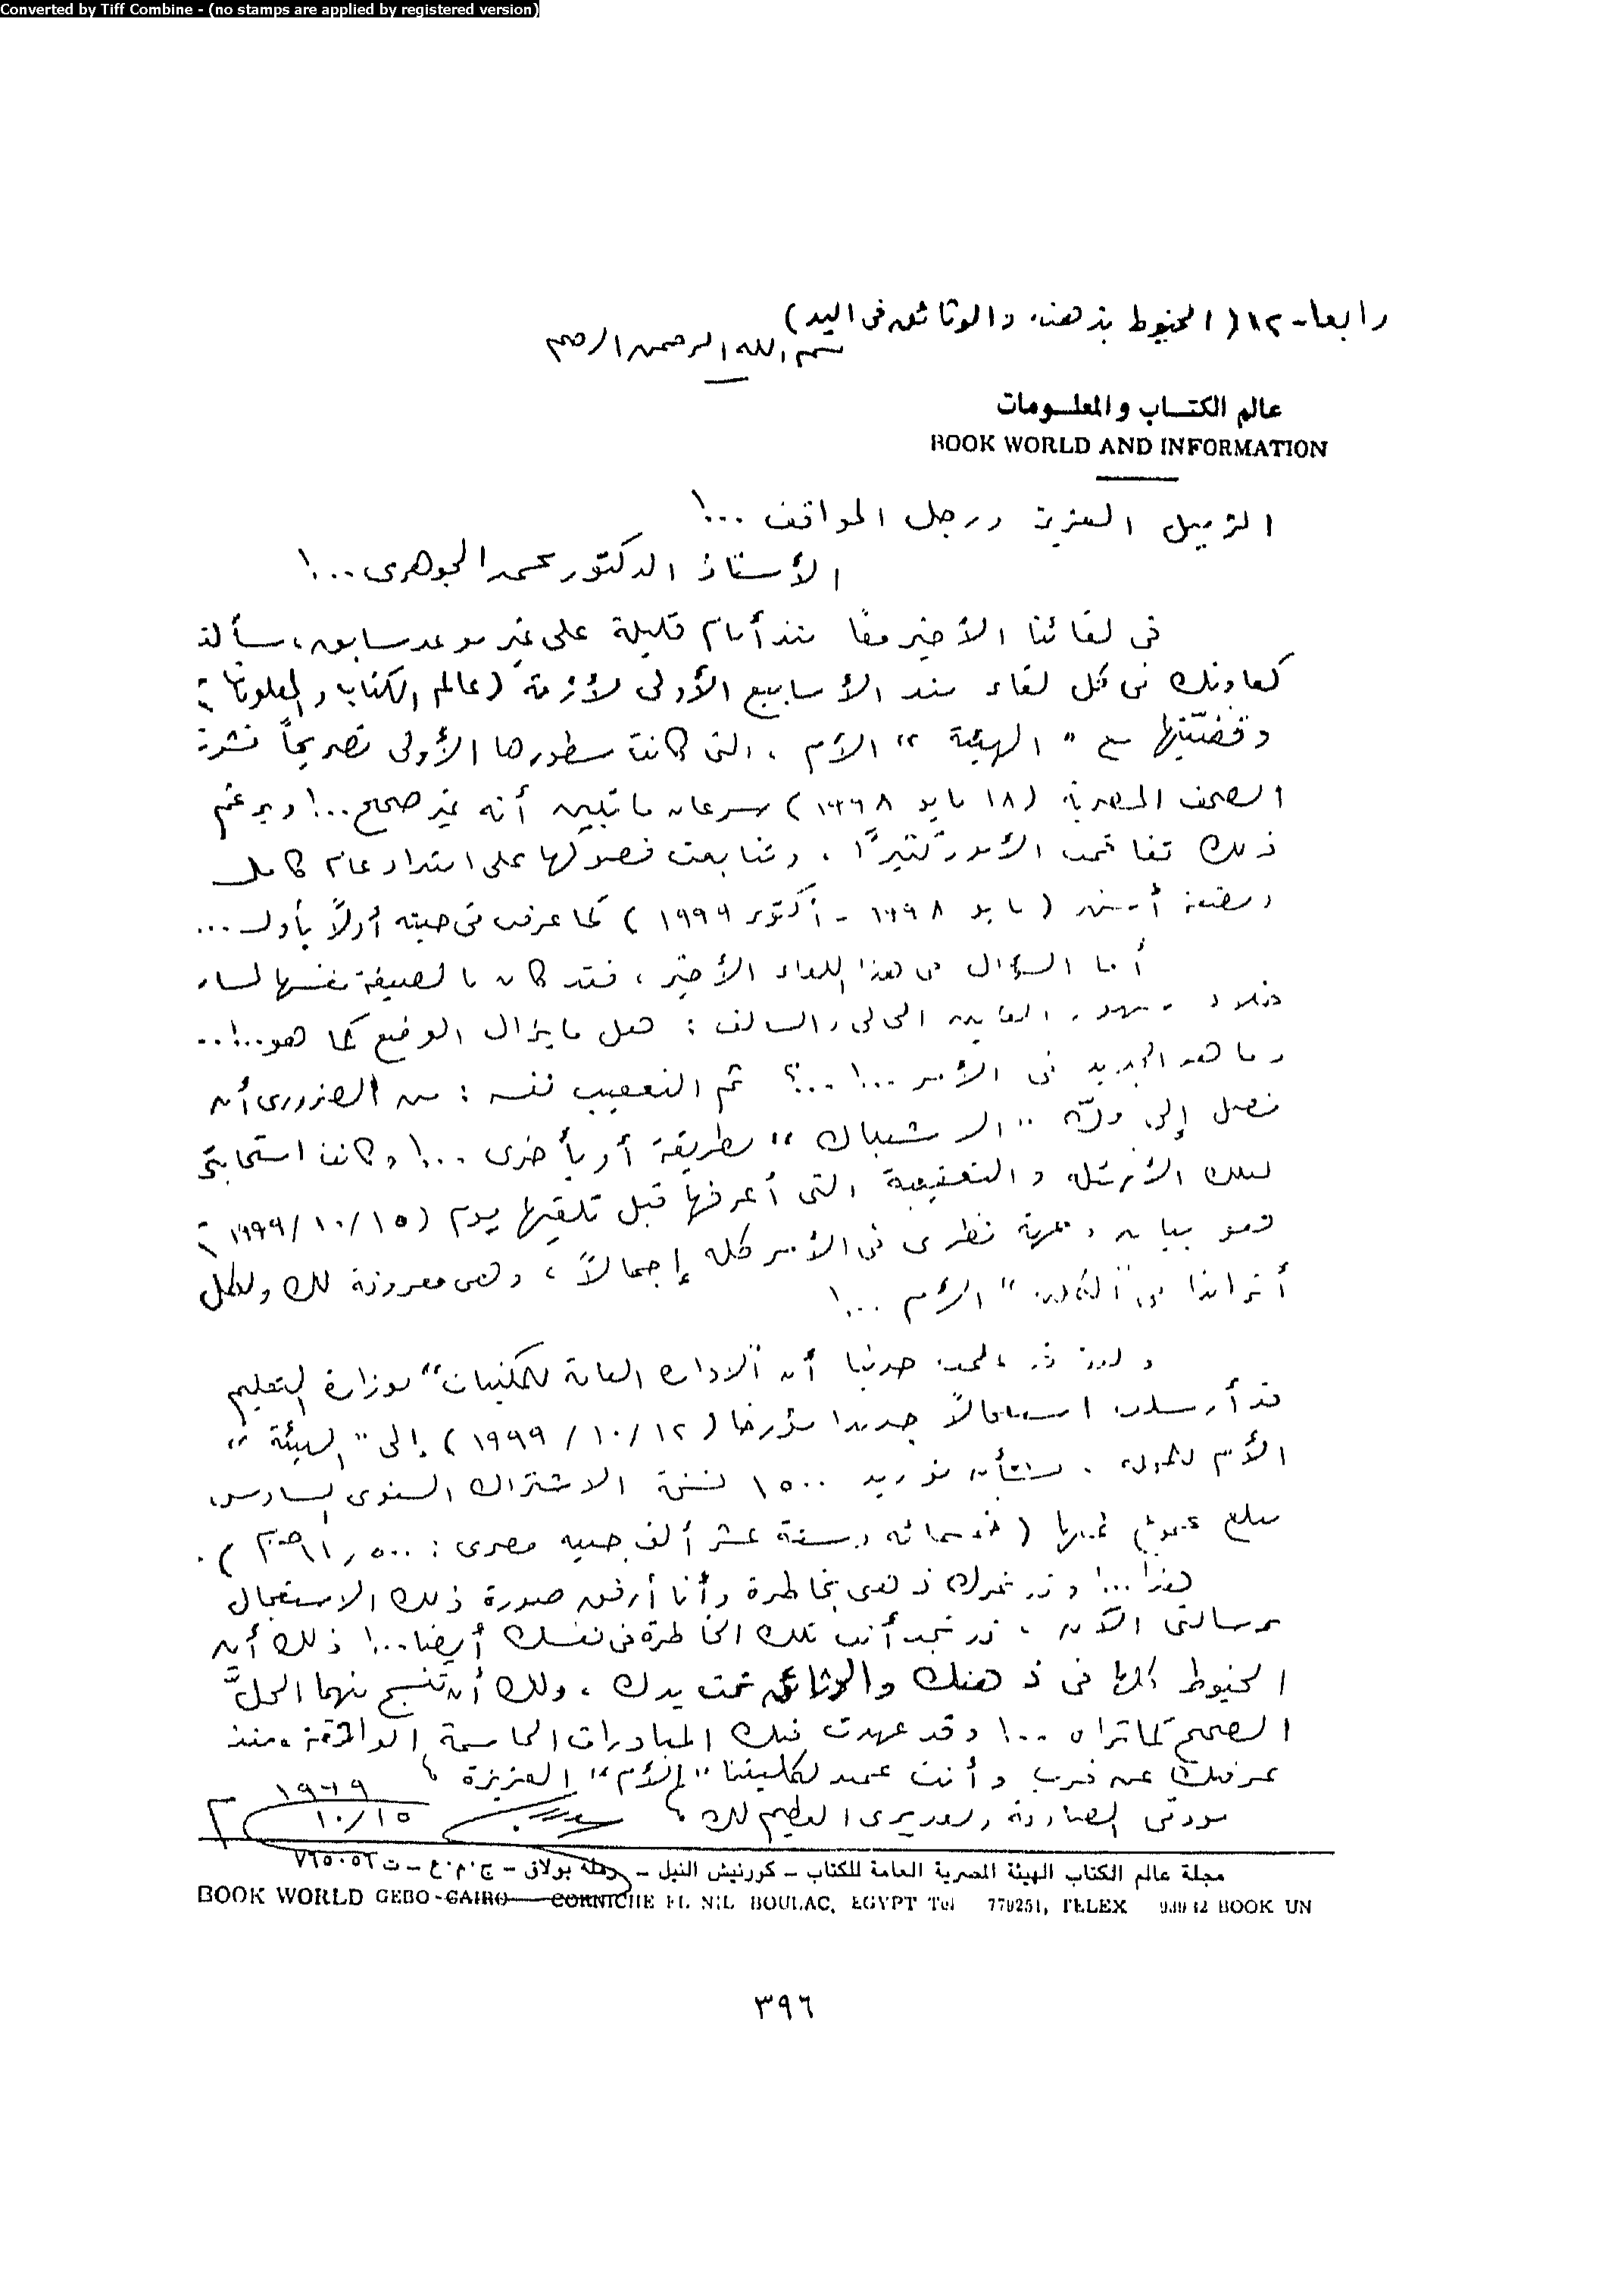 Converted by Tiff Combine - (no stamps are applied by registered version)
رابعا - ١٢ (الخيوط بذهنك والوثائق فى اليد)
بسم الله الرحمن الرحيم
عالم الكتــاب والمعلــومات
BOOK WORLD AND INFORMATION
الزميل العزيز ورجل المواقف ...!
الأستاذ الدكتور محمد الجوهرى ...!
فى لقائنا الأخير معًا منذ أيام قليلة على غير موعد سابق، سألت
كعادتك فى كل لقاء منذ الأسابيع الأولى لأزمة (عالم الكتاب والمعلومات)
وقضيّتها مع " الهيئة " الأم ، التى كانت سطورها الأولى تصريحاً نشرته
الصحف المصرية (١٨ مايو ١٩٩٨) سرعان ما تبين أنه غير صحيح ..! وبرغم
ذلك تفاقمت الأمور كثيرًا ، وتتابعت فصولها على امتداد عام كامل
وبضعة أشهر (مايو ١٩٩٨ - أكتوبر ١٩٩٩) كما عرفت فى حينه أولاً بأول ...
أما السؤال فى هذا اللقاء الأخير ، فقد كان بالصيغة نفسها
خلال العامين الحالى والسالف : هل ما يزال الوضع كما هو ..!..
وما هو الجديد فى الأمر ..! ..؟ ثم التعقيب نفسه : من الضرورى أن
نصل إلى فكّ " الاشتباك " بطريقة أو بأخرى ...! وكانت استجابتى
لتلك الأسئلة والتعقيب التى أعرفها قبل تلقيها يوم (١٩٩٩/١٠/١٥)
هو بيان وجهة نظرى فى الأمر كله إجمالاً ، وهى معروفة لك ولكل
" الأم ...!
أن "الادارة العامة للمكتبات" بوزارة التعليم
قد أرسلت استعجالاً جديدا مؤرخا (١٩٩٩/١٠/١٢) إلى " الهيئة "
الأم ، بشأن توريد ١٥٠٠ نسخة الاشتراك السنوى السادس،
مبلغ (خمسمائه وستة عشر ألف جنيه مصرى :
هذا ...! وقد تحرك ذهنى بخاطرة وأنا أرفق صورة ذلك الاستعجال
برسالتى الآن ، قد تجد أنت تلك الخاطرة فى نفسك أيضا ..! ذلك أن
الخيوط كلها فى ذهنك والوثائق تحت يدك ، ولك أن تنسج منهما الحلَّ
الصحيح كما تراه ..! وقد عهدت فيك المبادرات الحاسمة الواثقة، منذ
عرفتك عن قرب وأنت عميد لكليتنا " الأم " العزيزة ،
مودتى الصادقة وتقديرى العظيم لك ،
١٩٩٩
١٠/١٥
مجلة عالم الكتاب الهيئة المصرية العامة للكتاب – كورنيش النيل – رملة بولاق – ج ٠ م ٠ ع – ت ٧٦٥٠٥٢
BOOK WORLD GEBO - CAIRO CORNICHE EL NIL BOULAC, EGYPT Tel 779251, TELEX 93932 BOOK UN
٣٩٦